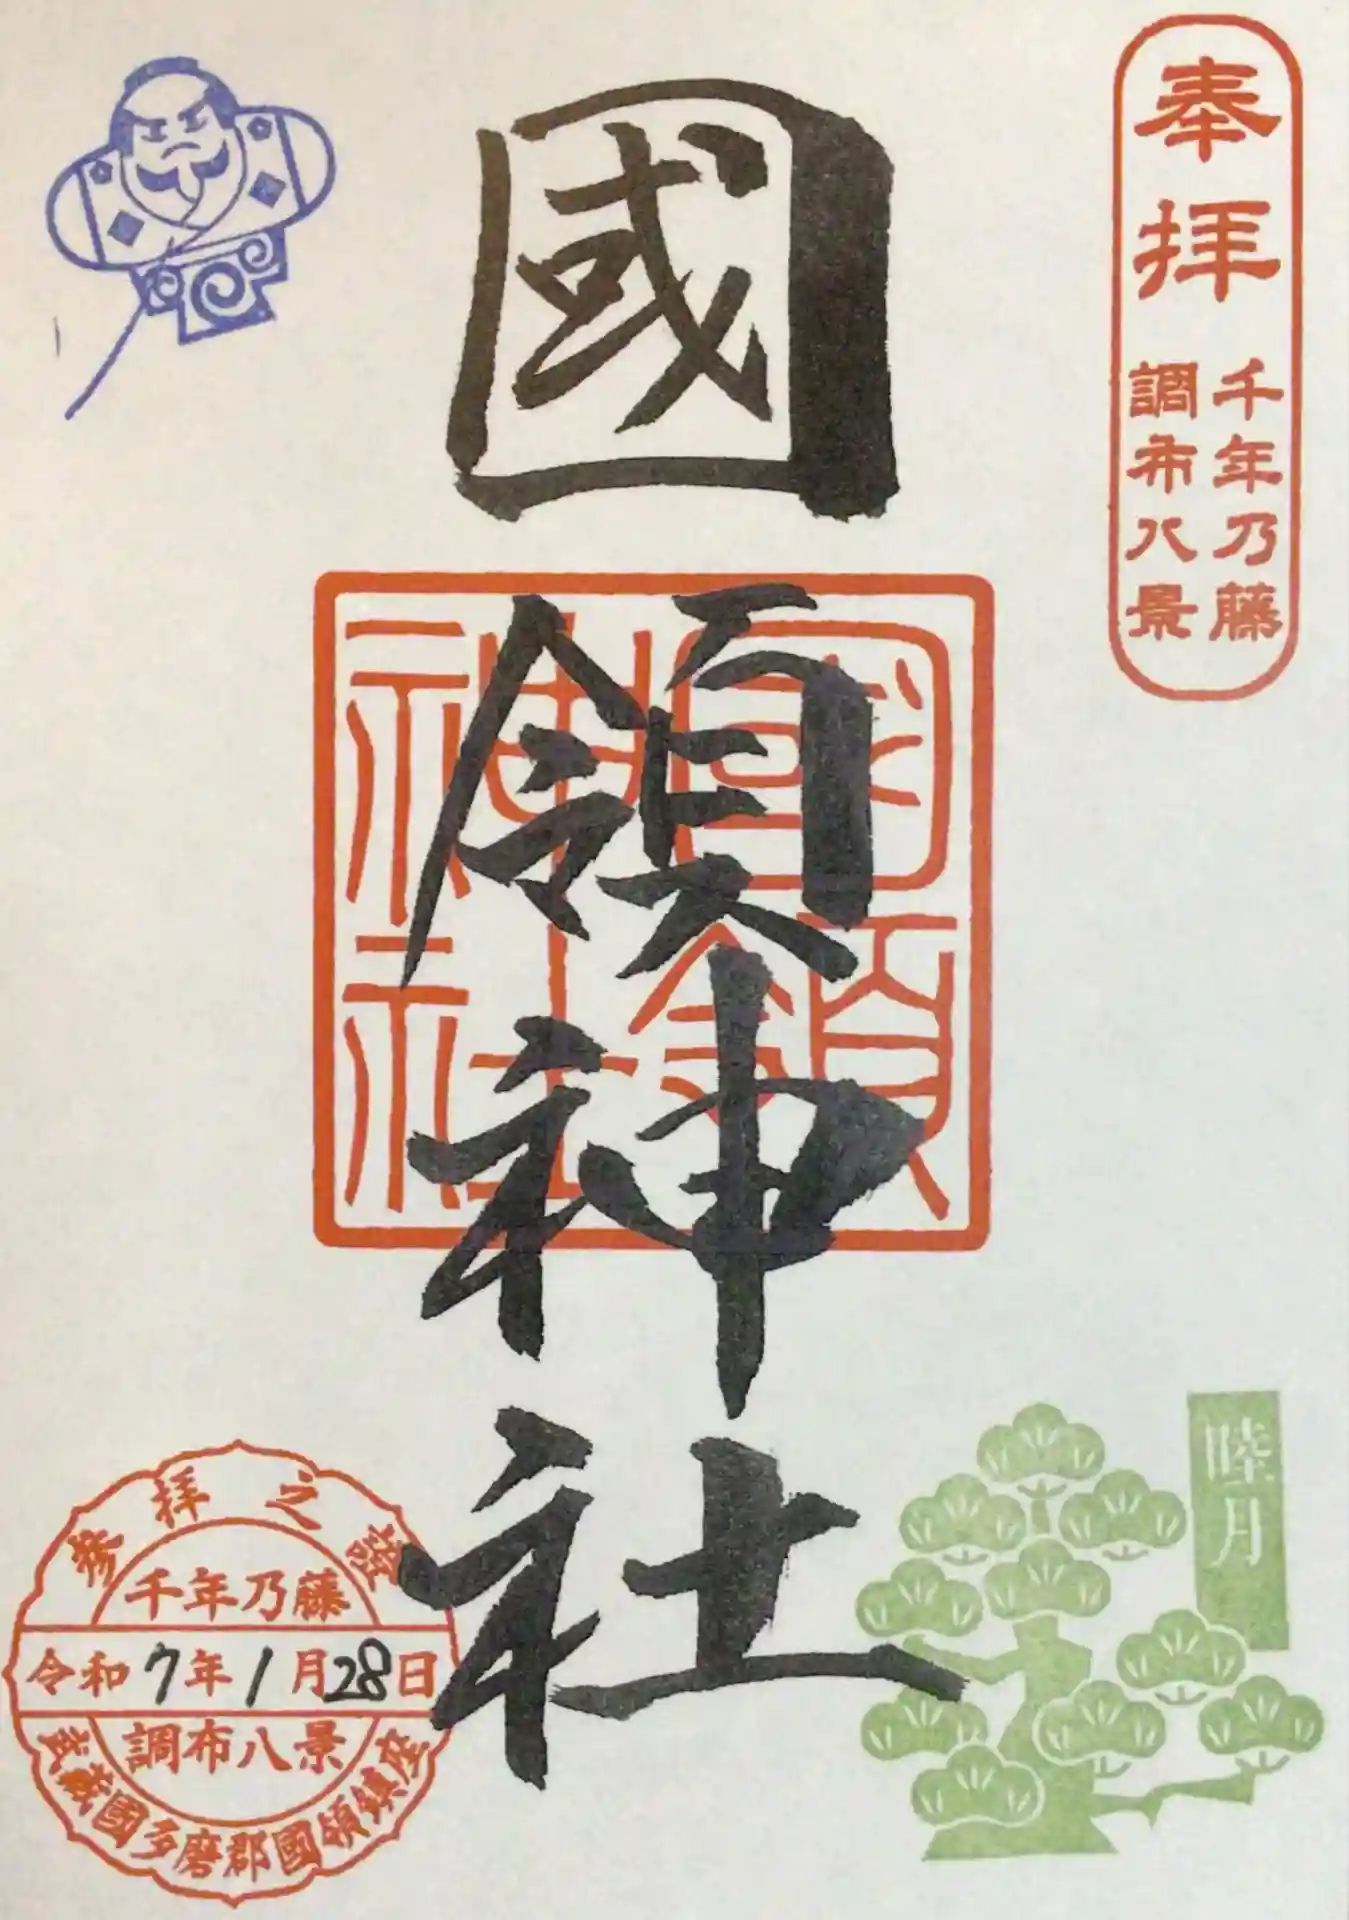 奉拝
千年乃藤
調布八景
國領神社
國領
神社
陸月
参拝之證
千年乃藤
令和7年1月28日
調布八景
武蔵國多磨郡國領鎮座